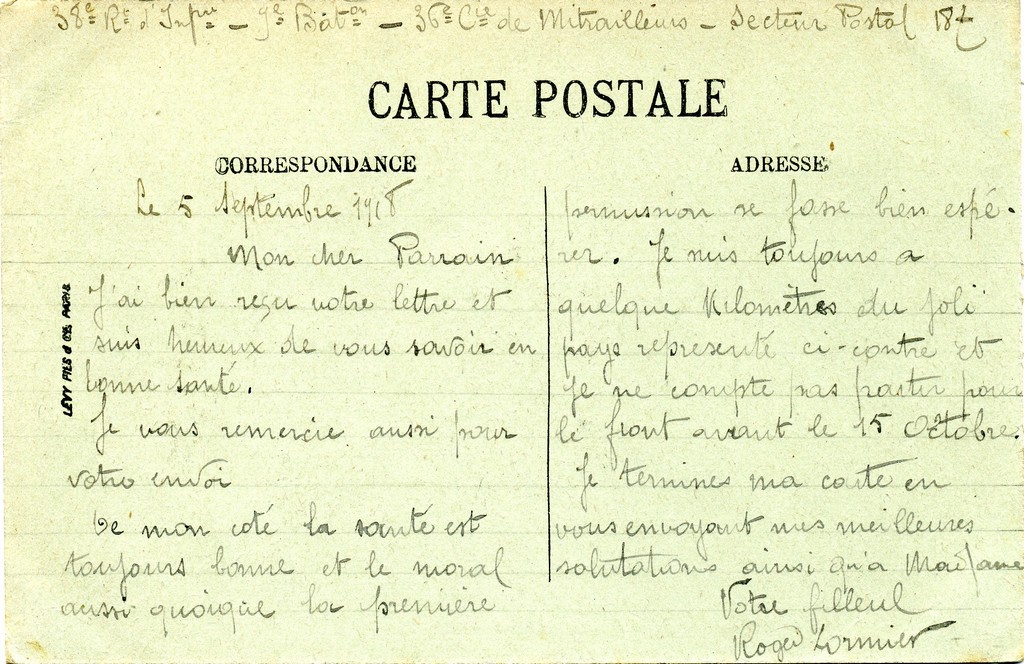 38e Rt d'Infrie - 9e Baton - 36e Cie de Mitrailleurs - Secteur Postal 187
CARTE POSTALE
CORRESPONDANCE
Le 5 Septembre 1918
Mon cher Parrain
J'ai bien reçu votre lettre et
suis heureux de vous savoir en
bonne santé.
Je vous remercie aussi pour
votre envoi
De mon coté la santé est
toujours bonne et le moral
aussi quoique la première
LEVY FILS & CIE PARIS
ADRESSE
permission se fasse bien espé-
rer. Je suis toujours a
quelque kilomètres du joli
pays représenté ci-contre et
je ne compte pas partir pour
le front avant le 15 Octobre.
Je termines ma carte en
vous envoyant mes meilleures
salutations ainsi qu'a Madame
Votre filleul
Roger Lormier